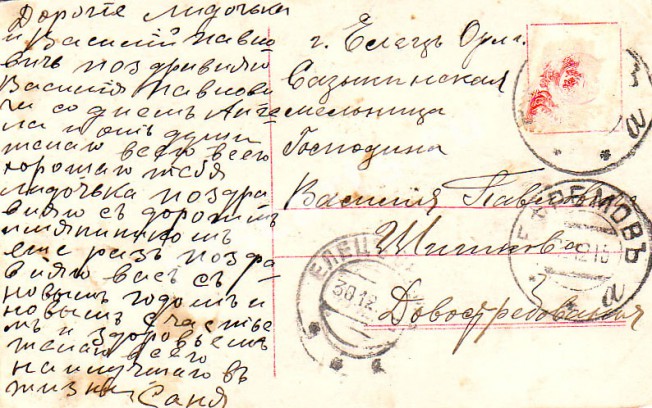 Дорогіе Лидочька
и Василій Павло
вичъ поздравляю
Василія Павлови
ча со днемъ Анге
ла и отъ души
желаю всего всего
хорошаго тебя
Лидочька поздра
вляю съ дорогимъ
имянинникомъ
еще разъ поздра
вляю васъ съ
новымъ годомъ и
новымъ счастье
мъ и здоровьемъ
желаю всего
наилучшаго въ
жизни Саня
г. Елецъ Орл.
Сазыкинская
мельница
Господина
Василія Павловича
Шишкова
Довостребованія
ЕЛЕЦ
30.12
ЕФРЕМОВЪ
12 15
а
а